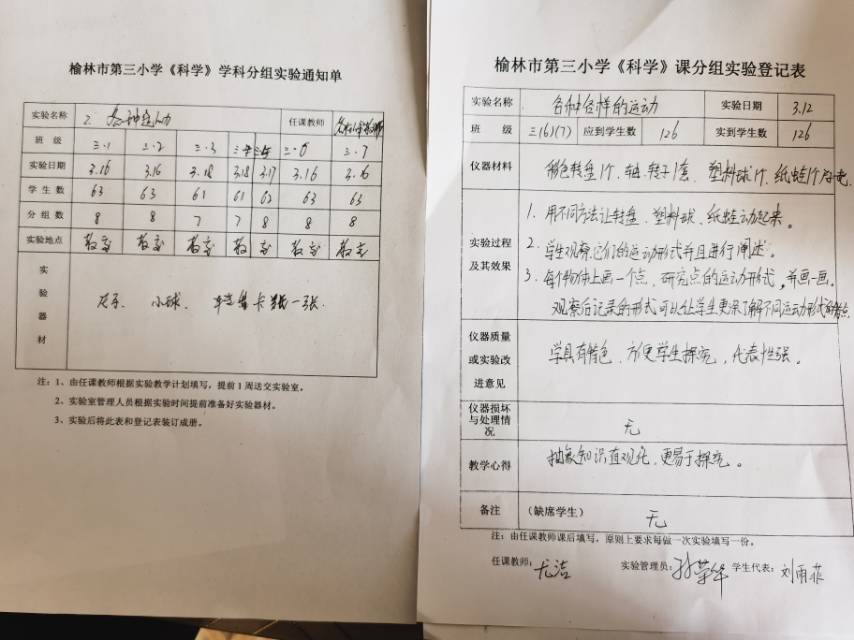 榆林市第三小学《科学》学科分组实验通知单
实验名称 2. 各种 力 任课教师
班 级 三.1 三.2 三.3 三.5 三.6 三.7
实验日期 3.16 3.16 3.18 3.18 3.17 3.16 3.16
学生数 63 63 61 61 62 63 63
分组数 8 8 7 7 8 8 8
实验地点 教室 教室 教室 教室 教室 教室 教室
实验器材
尺子、小球、 卡纸一张.
注:1、由任课教师根据实验教学计划填写,提前1周送交实验室。
2、实验室管理人员根据实验时间提前准备好实验器材。
3、实验后将此表和登记表装订成册。
榆林市第三小学《科学》课分组实验登记表
实验名称 各种各样的运动 实验日期 3.12
班 级 三(6)(7) 应到学生数 126 实到学生数 126
仪器材料 转盘1个、轴、转子1套、塑料球1个、纸蛙1个
实验过程及其效果
1. 用不同方法让转盘、塑料球、纸蛙动起来。
2. 学生观察它们的运动形式并且进行阐述。
3. 每个物体上画一个点,研究点的运动形式,并画一画。
观察后记录的形式可以让学生更深了解不同运动形式的特点
仪器质量或实验改进意见
学具有特色、方便学生探究,代表性强。
仪器损坏与处理情况 无
教学心得 抽象知识直观化、更易于探究。
备注 (缺席学生) 无
注:由任课教师课后填写,原则上要求每做一次实验填写一份。
任课教师:尤洁 实验管理员:孙荣华 学生代表:刘雨菲